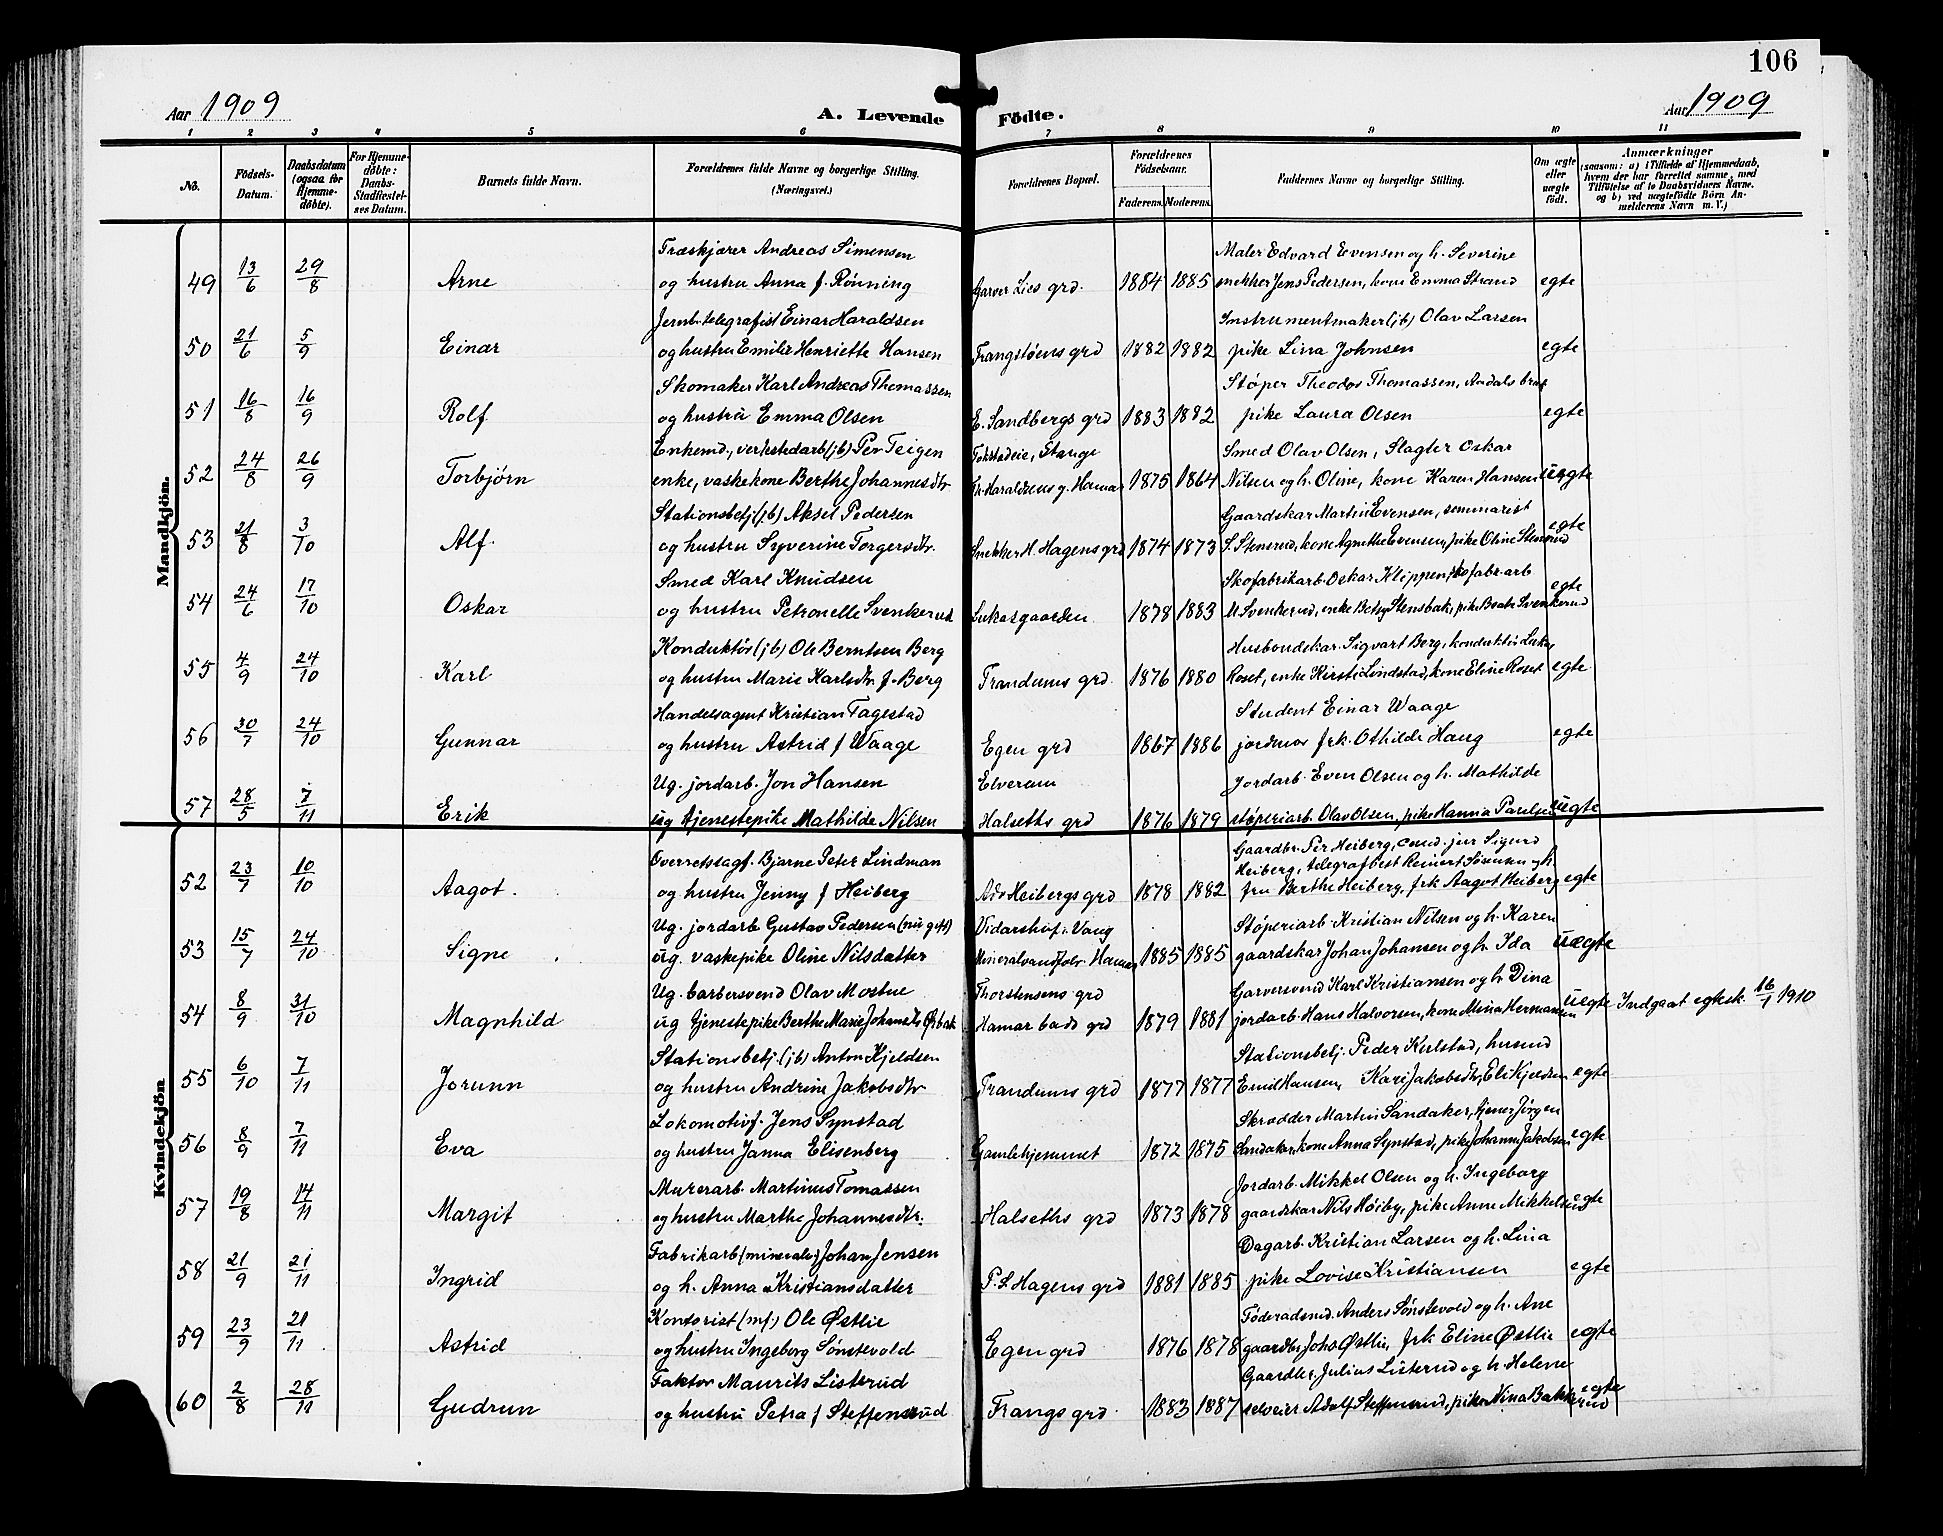 106
Aar 1909
A. Levende Födte.
Aar 1909
1 2 3 4 5 6 7 8 9 10 11
No.
Födsels-Datum.
Daabsdatum (ogsaa for Hjemme-döbte).
For Hjemme-döbte: Daabs-Stadfæstel-ses Datum.
Barnets fulde Navn.
Forældrenes fulde Navne og borgerlige Stilling. (Næringsvei.)
Forældrenes Bopæl.
Forældrenes Födselsaar.
Faderens. Moderens.
Faddernes Navne og borgerlige Stilling.
Om ægte eller uægte født.
Anmærkninger
(saasom: a) i Tilfælde af Hjemmedaab, hvem der har forrettet samme, med Tilföielse af to Daabsvidners Navne. og b) ved uægtefödte Börn Anmelderens Navn m. V.)
Mandkjön.
Træskjærer Andreas Simensen Maler Edvard Evensen og h. Severine
49 13/6 29/8 Arne og hustru Anna f. Rønning Garver Lies grd. 1884 1885 snekker Jens Pedersen, kone Emma Strand egte
Jernb.telegrafist Einar Haraldsen Instrumentmaker (jb) Olav Larsen
50 21/6 5/9 Einar og hustru Emilie Henriette Hansen Frangstøens grd 1882 1882 pike Lina Johnsen egte
Skomaker Karl Andreas Thomassen Støper Theodor Thomassen, Andals bruk
51 16/8 16/9 Rolf og hustru Emma Olsen E. Sandbergs grd 1883 1882 pike Laura Olsen egte
Enkemd., verkstedarb (jb) Per Teigen Tokstadeie, Stange Smed Olav Olsen, Slagter Oskar
52 24/8 26/9 Torbjørn enke, vaskekone Berthe Johannesdtr Kr. Haraldsens g. Hamar 1875 1864 Nilsen og h. Oline, kone Karen Hansen uegte
Stationsbetj (jb) Aksel Pedersen Gaardskar Martin Evensen, seminarist
53 21/8 3/10 Alf. og hustru Syverine Torgersdtr. Snekker H. Hagens grd 1874 1873 S. Stensrud, kone Agnethe Evensen, pike Oline Stensrud egte
Smed Karl Knudsen Skofabrikarb. Oskar Klippen, skofabr.arb
54 24/6 17/10 Oskar og hustru Petronelle Svenkerud Lukasgaarden 1878 1883 M Svenkerud, enke Betsy Stensbak, pike Beate Svenkerud egte
Konduktør (jb) Ole Berntsen Berg Husbondskar Sigvart Berg, konduktør Lukas
55 4/9 24/10 Karl og hustru Marie Karlsdtr f. Berg Trandums grd. 1876 1880 Roset, enke Kirsti Lindstad, kone Eline Roset egte
Handelsagent Kristian Fagestad Student Einar Waage
56 30/7 24/10 Gunnar og hustru Astrid f Waage Egen grd 1867 1886 jordmor frk. Othilde Haug egte
Ug. jordarb. Jon Hansen Elverum Jordarb. Even Olsen og h. Mathilde
57 28/5 7/11 Erik ug tjenestepike Mathilde Nilsen Halseths grd 1876 1879 støperiarb. Olav Olsen, pike Hanna Paulsen uegte
Kvindekjön
Overretssagf. Bjarne Peter Lindman Gaardbr. Per Heiberg, cand. jur Sigurd
Heiberg, telegrafbest Reinert Sørensen og h.
52 23/7 10/10 Aagot. og hustru Jenny f Heiberg Adv Heibergs grd 1878 1882 fru Berthe Heiberg, frk Aagot Heiberg egte
Ug. jordarb Gustav Pedersen (nu gift) Vidarshof i Vang Støperiarb. Kristian Nilsen og h. Karen
53 15/7 24/10 Signe ug. vaskepike Oline Nilsdatter Mineralvandfabr. Hamar 1885 1885 gaardskar Johan Johansen og h. Ida uægte
Ug. barbersvend Olav Mostue Thorstensens grd Garversvend Karl Kristiansen og h Dina
54 8/9 31/10 Magnhild ug tjenestepike Berthe Marie Johansdtr Østbak Hamar bads grd 1879 1881 jordarb. Hans Halvorsen, kone Mina Hermansen uegte Indgaat egtesk. 16/1 1910
Stationsbetj (jb) Anton Kjeldsen Stationsbetj. Peder Kulstad, husmd
55 6/10 7/11 Jorunn og hustru Andrine Jakobsdtr Trandums grd 1877 1877 Emil Hansen, Kari Jakobsdtr, Eli Kjeldsen egte
Lokomotivf. Jens Synstad Skrædder Martin Sandaker, tjener Jørgen
56 8/9 7/11 Eva og hustru Janna Elisenberg Gamlehjemmet 1872 1875 Sandaker, kone Anna Synstad, pike Johanne Jakobsen egte
Murerarb. Martinus Tomassen Jordarb. Mikkel Olsen og h. Ingeborg
57 19/8 14/11 Margit og hustru Marthe Johannesdtr. Halseths grd 1873 1878 gaardskar Nils Høiby, pike Anne Mikkelsen egte
Fabrikarb (mineralv.) Johan Jensen Dagarb. Kristian Larsen og h. Lina
58 21/9 21/11 Ingrid og h. Anna Kristiansdatter P. S. Hagens grd 1881 1885 pike Lovise Kristiansen egte
Kontorist (mf.) Ole Østlie Føderaadsmd. Anders Sønstevold og h. Ane
59 23/9 21/11 Astrid og hustru Ingeborg Sønstevold Egen grd 1876 1878 gaardbr Johs Østlie, frk Eline Østlie egte
Faktor Maurits Listerud Gaardbr. Julius Listerud og h. Helene
60 2/8 28/11 Gudrun og hustru Petra f Steffensrud Frangs grd 1883 1887 selveier Adolf Steffensrud, pike Nina Bakkerud egte